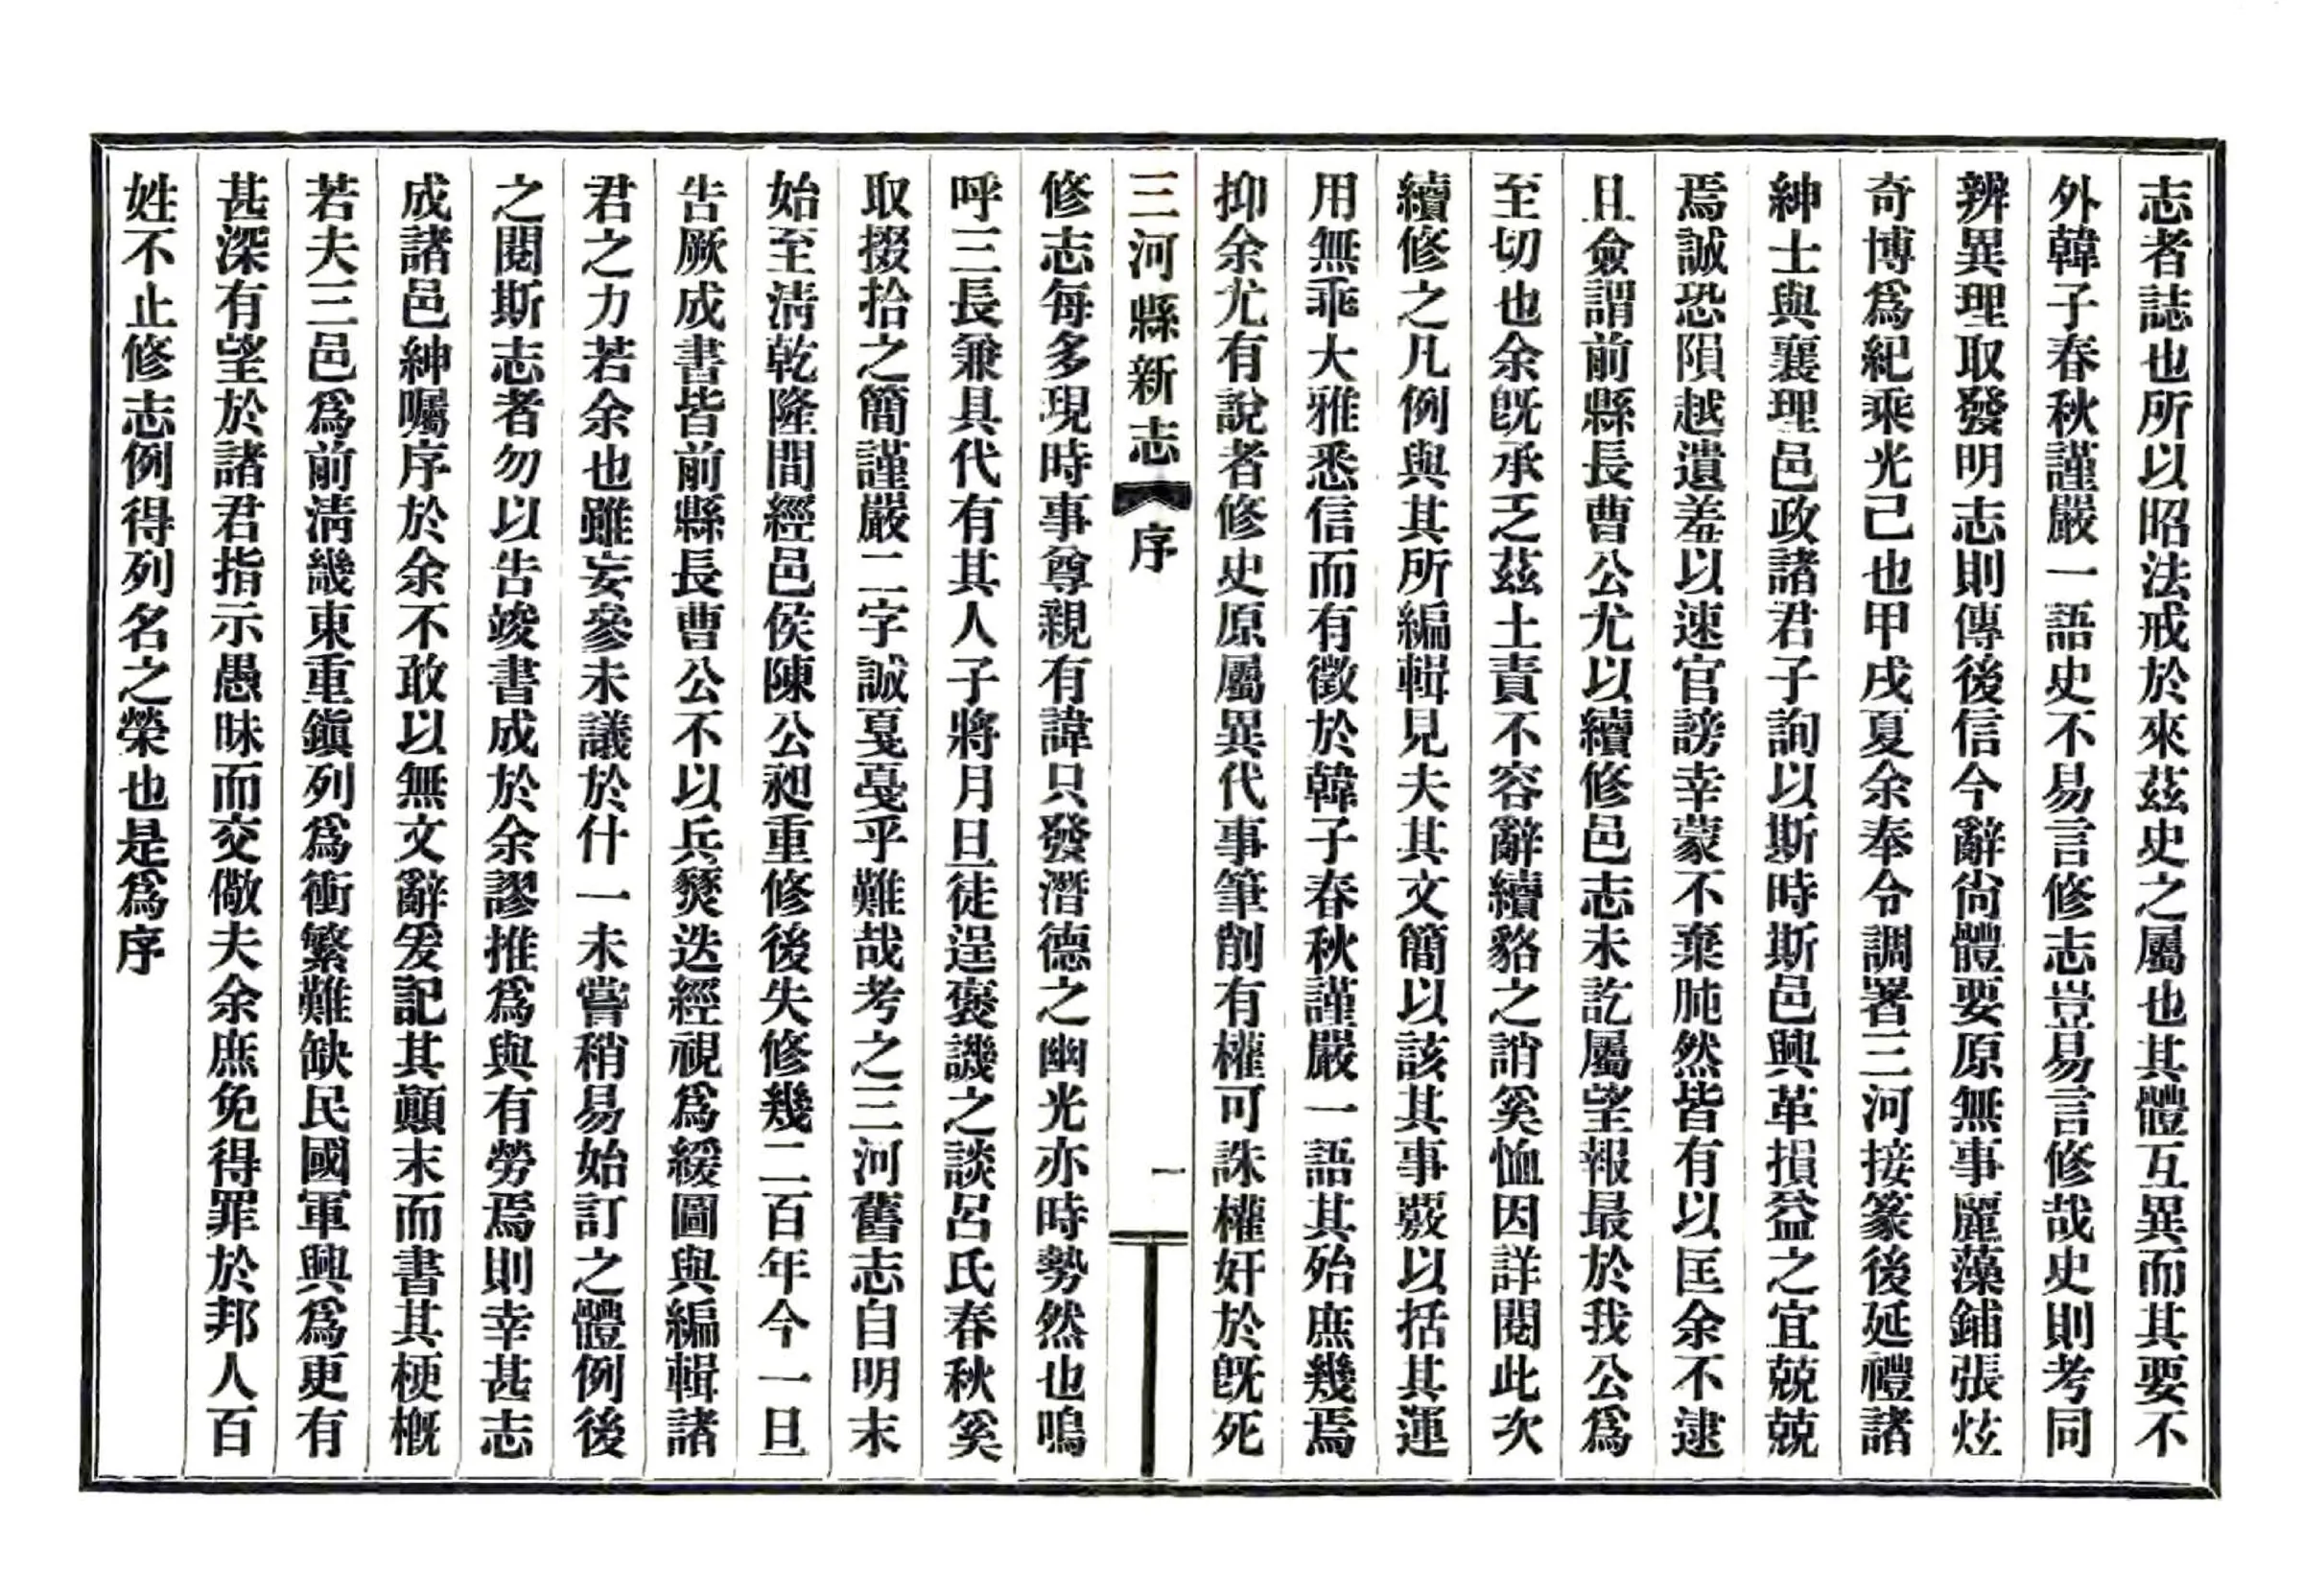 志者誌也所以昭法戒於來茲史之屬也其體互異而其要不
外韓子春秋謹嚴一語史不易言修志豈易言修哉史則考同
辨異理取發明志則傳後信今辭尙體要原無事麗藻鋪張炫
奇博爲紀乘光己也甲戌夏余奉令調署三河接篆後延禮諸
紳士與襄理邑政諸君子詢以斯時斯邑興革損益之宜兢兢
焉誠恐隕越遺羞以速官謗幸蒙不棄肫然皆有以匡余不逮
且僉謂前縣長曹公尤以續修邑志未訖屬望報最於我公爲
至切也余旣承乏茲土責不容辭續貂之誚奚恤因詳閱此次
續修之凡例與其所編輯見夫其文簡以該其事覈以括其運
用無乖大雅悉信而有徵於韓子春秋謹嚴一語其殆庶幾焉
抑余尤有說者修史原屬異代事筆削有權可誅權奸於旣死
三河縣新志 序 一
修志每多現時事尊親有諱只發潛德之幽光亦時勢然也嗚
呼三長兼具代有其人子將月旦徒逞褒譏之談呂氏春秋奚
取掇拾之簡謹嚴二字誠戞戞乎難哉考之三河舊志自明末
始至淸乾隆間經邑侯陳公昶重修後失修幾二百年今一旦
告厥成書皆前縣長曹公不以兵燹迭經視爲緩圖與編輯諸
君之力若余也雖妄參未議於什一未嘗稍易始訂之體例後
之閱斯志者勿以告竣書成於余謬推爲與有勞焉則幸甚志
成諸邑紳囑序於余不敢以無文辭爰記其顚末而書其梗槪
若夫三邑爲前淸畿東重鎭列爲衝繁難缺民國軍興爲更有
甚深有望於諸君指示愚昧而交儆夫余庶免得罪於邦人百
姓不止修志例得列名之榮也是爲序